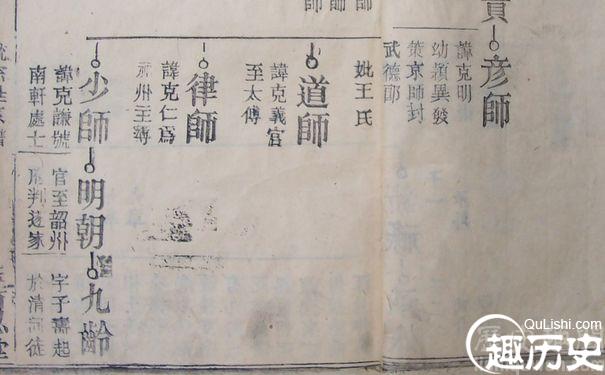 彥師
諱克明
幼穎異發
策京師封
武德郎
師
師
妣王氏
道師
諱克義官
至太傅
律師
諱克仁為
州主簿
少師
諱克謙號
南軒處士
明朝
官至韶州
判遂家
九齡
字子壽起
於清河徒
QuLishi.com
趣历史